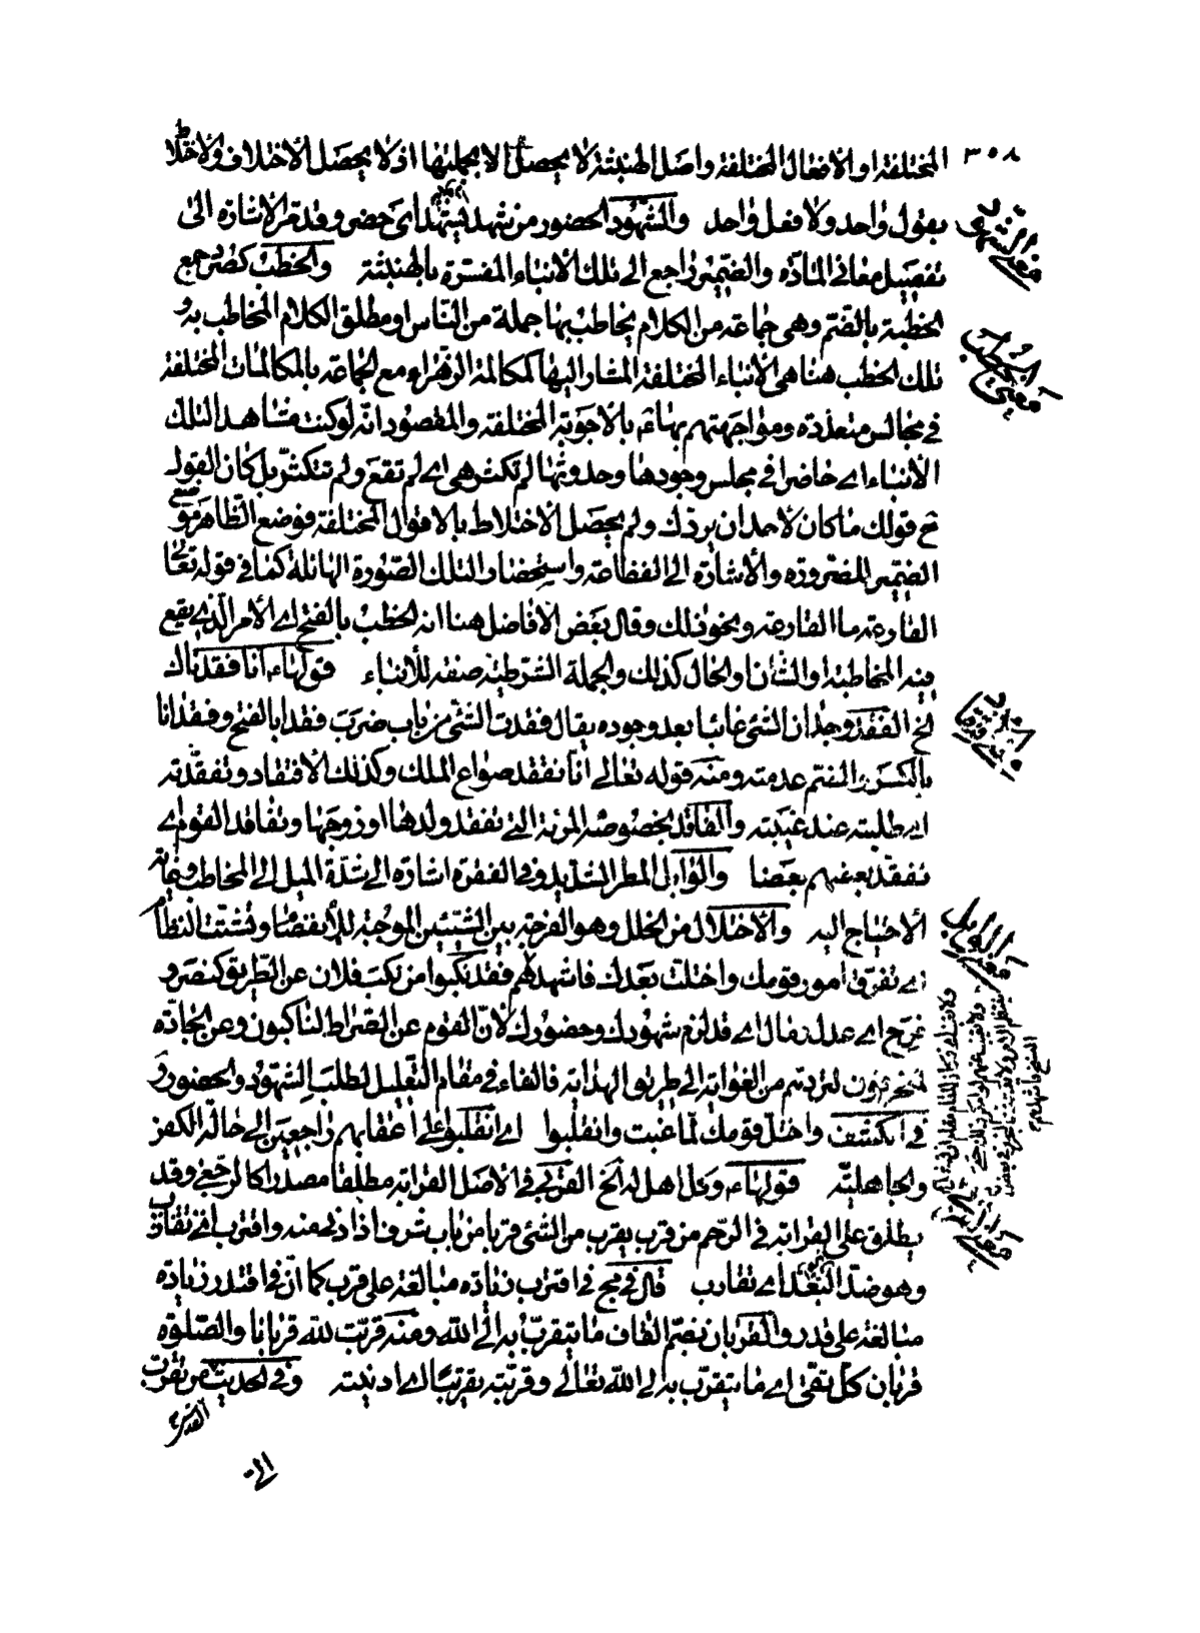 ٣٠٨
المختلفة او الافعال المختلفة واصل الهنبثة لا يحصل الا بجملتها اذ لا يحصل الاختلاف والاختلاط
بقول واحد ولا فعل واحد والشهود الحضور من شهد يشهد اى حضر وقد مر الاشارة الى
تفصيل معانى المادّة والضمير راجع الى تلك الانباء المفسّرة بالهنبثة والخطب كصرد جمع
الخطبة بالضم وهى جماعة من الكلام يخاطب بها جملة من النّاس او مطلق الكلام المخاطب به و
تلك الخطب هنا هى الانباء المختلفة المشار اليها كمكالمة الزهراء مع الجماعة بالمكالمات المختلفة
فى مجالس متعدّدة ومواجهتهم بها بالاجوبة المختلفة والمقصود انّه لو كنت مشاهدا لتلك
الانباء اے حاضرا فى مجلس وجودها وحدوثها لم تكثر هى اے لم تقع ولم تتكثّر بل كان القول
ح قولك ما كان لاحد ان يردّك ولم يحصل الاختلاط بالاقوال المختلفة فوضع الظاهر موضع
الضمير للضرورة والاشارة الى الفظاعة واستحضار لتلك الصّورة الهائلة كما فى قوله تعالى
القارعة ما القارعة ونحو ذلك وقال بعض الافاضل هنا انه الخطب بالفتح اے الامر الّذى يقع
فيه المخاطبة او الشأن او الحال كذلك والجملة الشرطيّة صفة للأنباء قولهاء انا فقدناك
الخ الفقد وجدان الشئ غائبا بعد وجوده يقال فقدت الشئ من باب ضرب فقدا بالفتح وفقدانا
بالكسر والضم عدمته ومنه قوله تعالى انا نفقد صواع الملك وكذلك الافتقاد وتفقّدته
اے طلبته عند غيبته والفاقد بخصوصه المرئة التى تفقد ولدها او زوجها وتفاقد القوم اے
تفقّد بعضهم بعضا والوابل المطر الشديد وفى الفقرة اشارة الى شدّة الميل الى المخاطب ونهاية
الاحتياج اليه والاختلال من الخلل وهو الفرجة بين الشيئين الموجبة للانفصام وتشتّت النظام
اے تفرّق امور قومك واختلت بعدك فاشهدهم فقد نكبوا من نكب فلان عن الطّريق كنصر و
فرح اے عدل ومال اے قد لزم شهودك وحضورك لانّ القوم عن الصّراط لناكبون وعن الجادّة
منحرفون لتردّهم من الغواية الى طريق الهداية فالفاء فى مقام التعليل لطلب الشهود والحضور و
فى الكشف واختلّ قومك لمّا غبت وانقلبوا اے انقلبوا على اعقابهم راجعين الى حالة الكفر
والجاهليّة قولهاء وكل اهل له الخ القربى فى الاصل القرابة مطلقا مصدرا كالرّجعى وقد
يطلق على القرابة فى الرّحم من قرب يقرب من الشئ قربا من باب شرف اذا دنى منه واقترب اى تقارب
وهو ضدّ البعد اے تقارب قال فى مج فى اقترب زيادة مبالغة على قرب كما انّ فى اقتدر زيادة
مبالغة على قدر والقربان بضمّ القاف ما يتقرّب به الى الله ومنه قربت لله قربانا والصّلوة
قربان كلّ تقى اے ما يتقرّب به الى الله تعالى وقربته تقريبا اے ادنيته وفى الحديث من تقرّب
الى